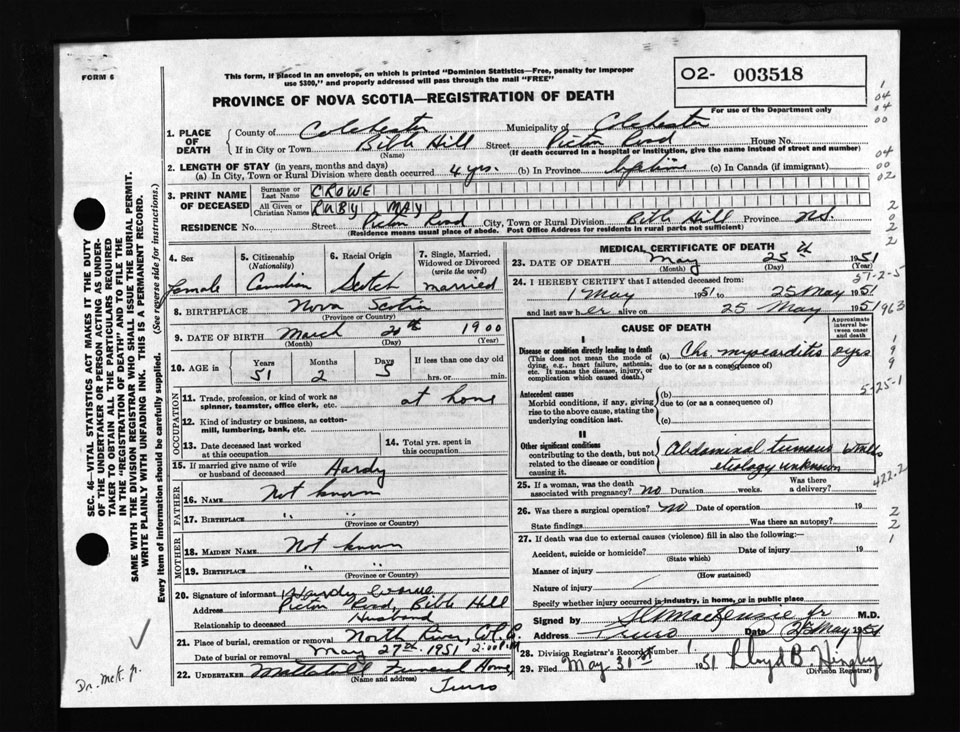 FORM 6
This form, if placed in an envelope, on which is printed "Dominion Statistics—Free, penalty for improper
use $300," and properly addressed will pass through the mail "FREE"
PROVINCE OF NOVA SCOTIA—REGISTRATION OF DEATH
O2- 003518
For use of the Department only
1. PLACE OF DEATH
County of Colchester Municipality of Colchester
If in City or Town Bible Hill Street Pictou Road House No.
(Name) (If death occurred in a hospital or institution, give the name instead of street and number)
2. LENGTH OF STAY (in years, months and days)
(a) In City, Town or Rural Division where death occurred 4 yrs. (b) In Province lifetime (c) In Canada (if immigrant)
3. PRINT NAME OF DECEASED
Surname or Last Name CROWE
All Given or Christian Names RUBY MAY
RESIDENCE No. Street Pictou Road City, Town or Rural Division Bible Hill Province N.S.
(Residence means usual place of abode. Post Office Address for residents in rural parts not sufficient)
4. Sex
female
5. Citizenship
(Nationality)
Canadian
6. Racial Origin
Scotch
7. Single, Married,
Widowed or Divorced
(write the word)
married
8. BIRTHPLACE Nova Scotia
(Province or Country)
9. DATE OF BIRTH March 20th 1900
(Month) (Day) (Year)
10. AGE in
Years Months Days If less than one day old
51 2 5 hrs. or min.
OCCUPATION
11. Trade, profession, or kind of work as
spinner, teamster, office clerk, etc. at home
12. Kind of industry or business, as cotton-
mill, lumbering, bank, etc.
13. Date deceased last worked
at this occupation
14. Total yrs. spent in
this occupation
15. If married give name of wife
or husband of deceased Hardy
FATHER
16. NAME Not known
17. BIRTHPLACE " "
(Province or Country)
MOTHER
18. MAIDEN NAME Not known
19. BIRTHPLACE " "
(Province or Country)
20. Signature of informant Hardy Crowe
Address Pictou Road, Bible Hill
Relationship to deceased Husband
21. Place of burial, cremation or removal North River, Col. Co.
Date of burial or removal May 27th 1951 2:00 P.M
22. UNDERTAKER Funeral Home
(Name and address) Truro
MEDICAL CERTIFICATE OF DEATH
23. DATE OF DEATH May 25th 1951
(Month) (Day) (Year)
24. I HEREBY CERTIFY that I attended deceased from:
1 May 1951 to 25 May 1951
and last saw her alive on 25 May 1951
CAUSE OF DEATH
Approximate
interval be-
tween onset
and death
I
Disease or condition directly leading to death
(This does not mean the mode of
dying, e.g., heart failure, asthenia,
etc. It means the disease, injury, or
complication which caused death.)
(a) Chr. myocarditis yrs
due to (or as a consequence of)
Antecedent causes
Morbid conditions, if any, giving
rise to the above cause, stating the
underlying condition last.
(b)
due to (or as a consequence of)
(c)
II
Other significant conditions
contributing to the death, but not
related to the disease or condition
causing it.
Abdominal tumour
etiology unknown
25. If a woman, was the death
associated with pregnancy? no Duration weeks. Was there
a delivery?
26. Was there a surgical operation? no Date of operation 19
State findings Was there an autopsy?
27. If death was due to external causes (violence) fill in also the following:
Accident, suicide or homicide? Date of injury 19
(State which)
Manner of injury
(How sustained)
Nature of injury
Specify whether injury occurred in industry, in home, or in public place
Signed by M.D.
Address Truro Date 25 May 1951
28. Division Registrar's Record Number 1
29. Filed May 31st 1951 Lloyd B.
(Division Registrar)
SEC. 46—VITAL STATISTICS ACT MAKES IT THE DUTY
OF THE UNDERTAKER OR PERSON ACTING AS UNDER-
TAKER TO OBTAIN ALL THE PARTICULARS REQUIRED
IN THE "REGISTRATION OF DEATH" AND TO FILE THE
SAME WITH THE DIVISION REGISTRAR WHO SHALL ISSUE THE BURIAL PERMIT.
WRITE PLAINLY WITH UNFADING INK. THIS IS A PERMANENT RECORD.
Every item of information should be carefully supplied. (See reverse side for instructions.)
1
04
04
00
04
00
02
2
0
2
2
57-2-5
963
1
9
9
5-25-1
422.2
2
2
1